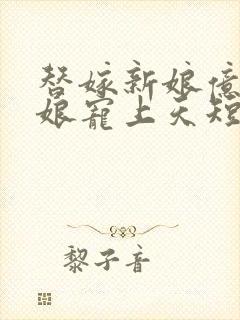 替嫁新娘亿
娘宠上天短
黎子音